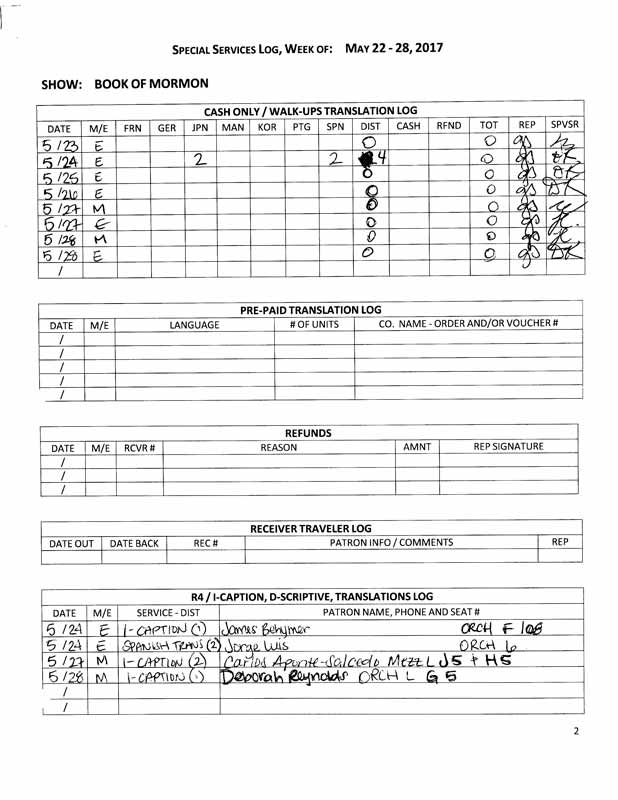 SPECIAL SERVICES LOG, WEEK OF: MAY 22 - 28, 2017
SHOW: BOOK OF MORMON
CASH ONLY / WALK-UPS TRANSLATION LOG
DATE M/E FRN GER JPN MAN KOR PTG SPN DIST CASH RFND TOT REP SPVSR
5 /23 E 0 0
5 /24 E 2 2 4 0 DK
5 /25 E 0 0 DK
5 /26 E 0 0 DK
5 /27 M 0 0
5 /27 E 0 0
5 /28 M 0 0
5 /28 E 0 0 DK
/
PRE-PAID TRANSLATION LOG
DATE M/E LANGUAGE # OF UNITS CO. NAME - ORDER AND/OR VOUCHER #
/
/
/
/
/
REFUNDS
DATE M/E RCVR # REASON AMNT REP SIGNATURE
/
/
/
RECEIVER TRAVELER LOG
DATE OUT DATE BACK REC # PATRON INFO / COMMENTS REP
R4 / I-CAPTION, D-SCRIPTIVE, TRANSLATIONS LOG
DATE M/E SERVICE - DIST PATRON NAME, PHONE AND SEAT #
5 /24 E I-CAPTION (1) James Behymer ORCH F 108
5 /24 E SPANISH TRANS (2) Jorge Luis ORCH 6
5 /27 M I-CAPTION (2) Carlos Aponte-Salcedo Mezz L J5 + H5
5 /28 M I-CAPTION (1) Deborah Reynolds ORCH L G 5
/
/
2